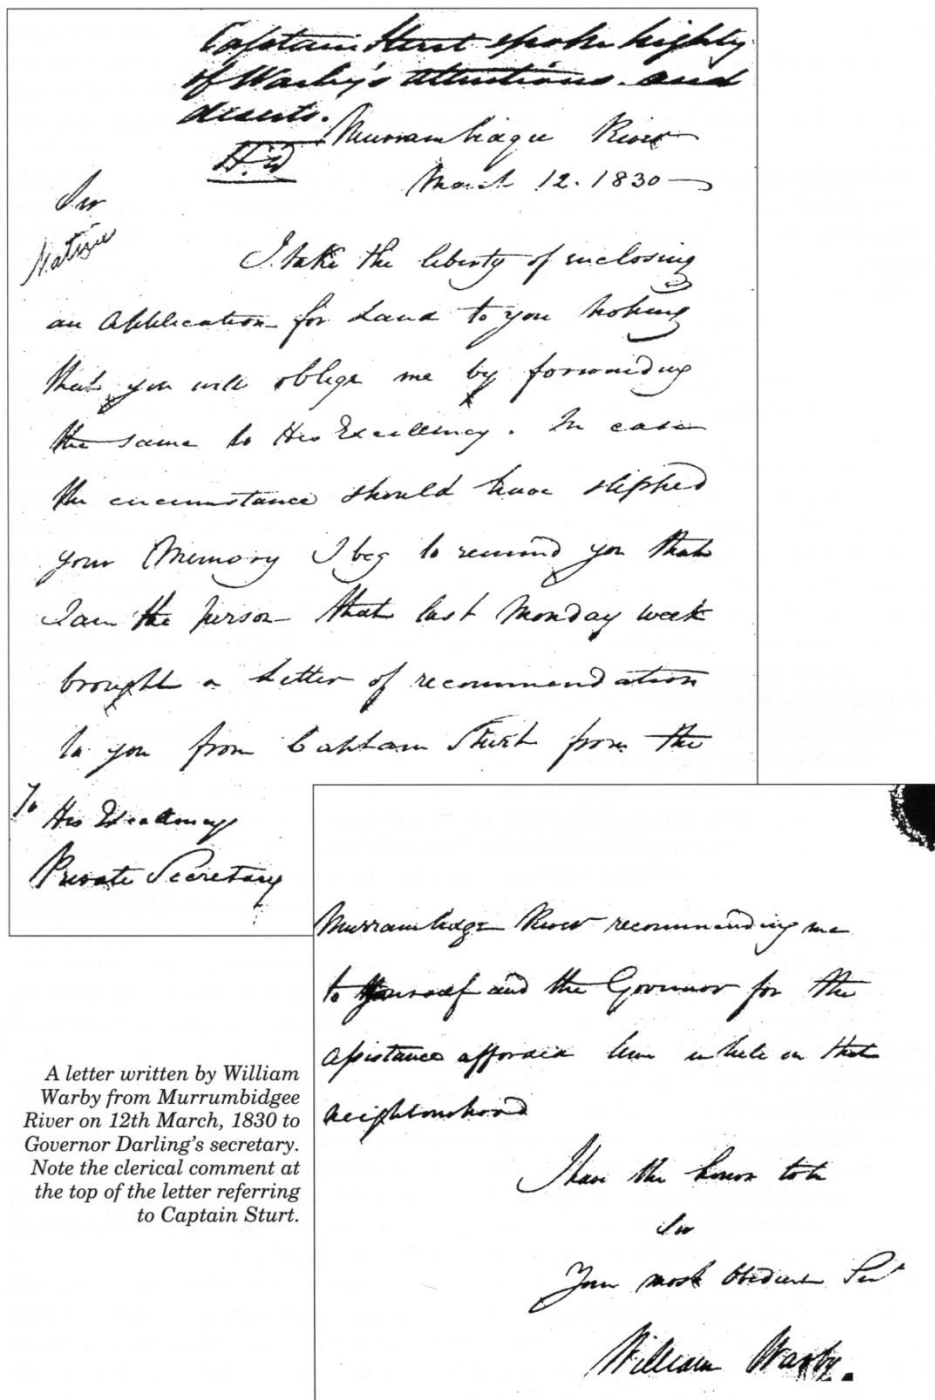 Captain Sturt spoke highly
of Warby's attentions and
deserts.
H.D
Murrambidgee River
March 12. 1830
Sir
Native
I take the liberty of enclosing
an Application for Land to you hoping
that you will oblige me by forwarding
the same to His Excellency. In case
the circumstance should have slipped
your Memory I beg to remind you that
I am the person that last Monday week
brought a Letter of recommendation
to you from Captain Sturt from the
To
His Excellency
Private Secretary
Murrambidge River recommending me
to Yourself and the Governor for the
Assistance afforded him while in that
neighbourhood
I have the honor to be
Sir
Your most Obedient Servt
William Warby.
A letter written by William
Warby from Murrumbidgee
River on 12th March, 1830 to
Governor Darling's secretary.
Note the clerical comment at
the top of the letter referring
to Captain Sturt.